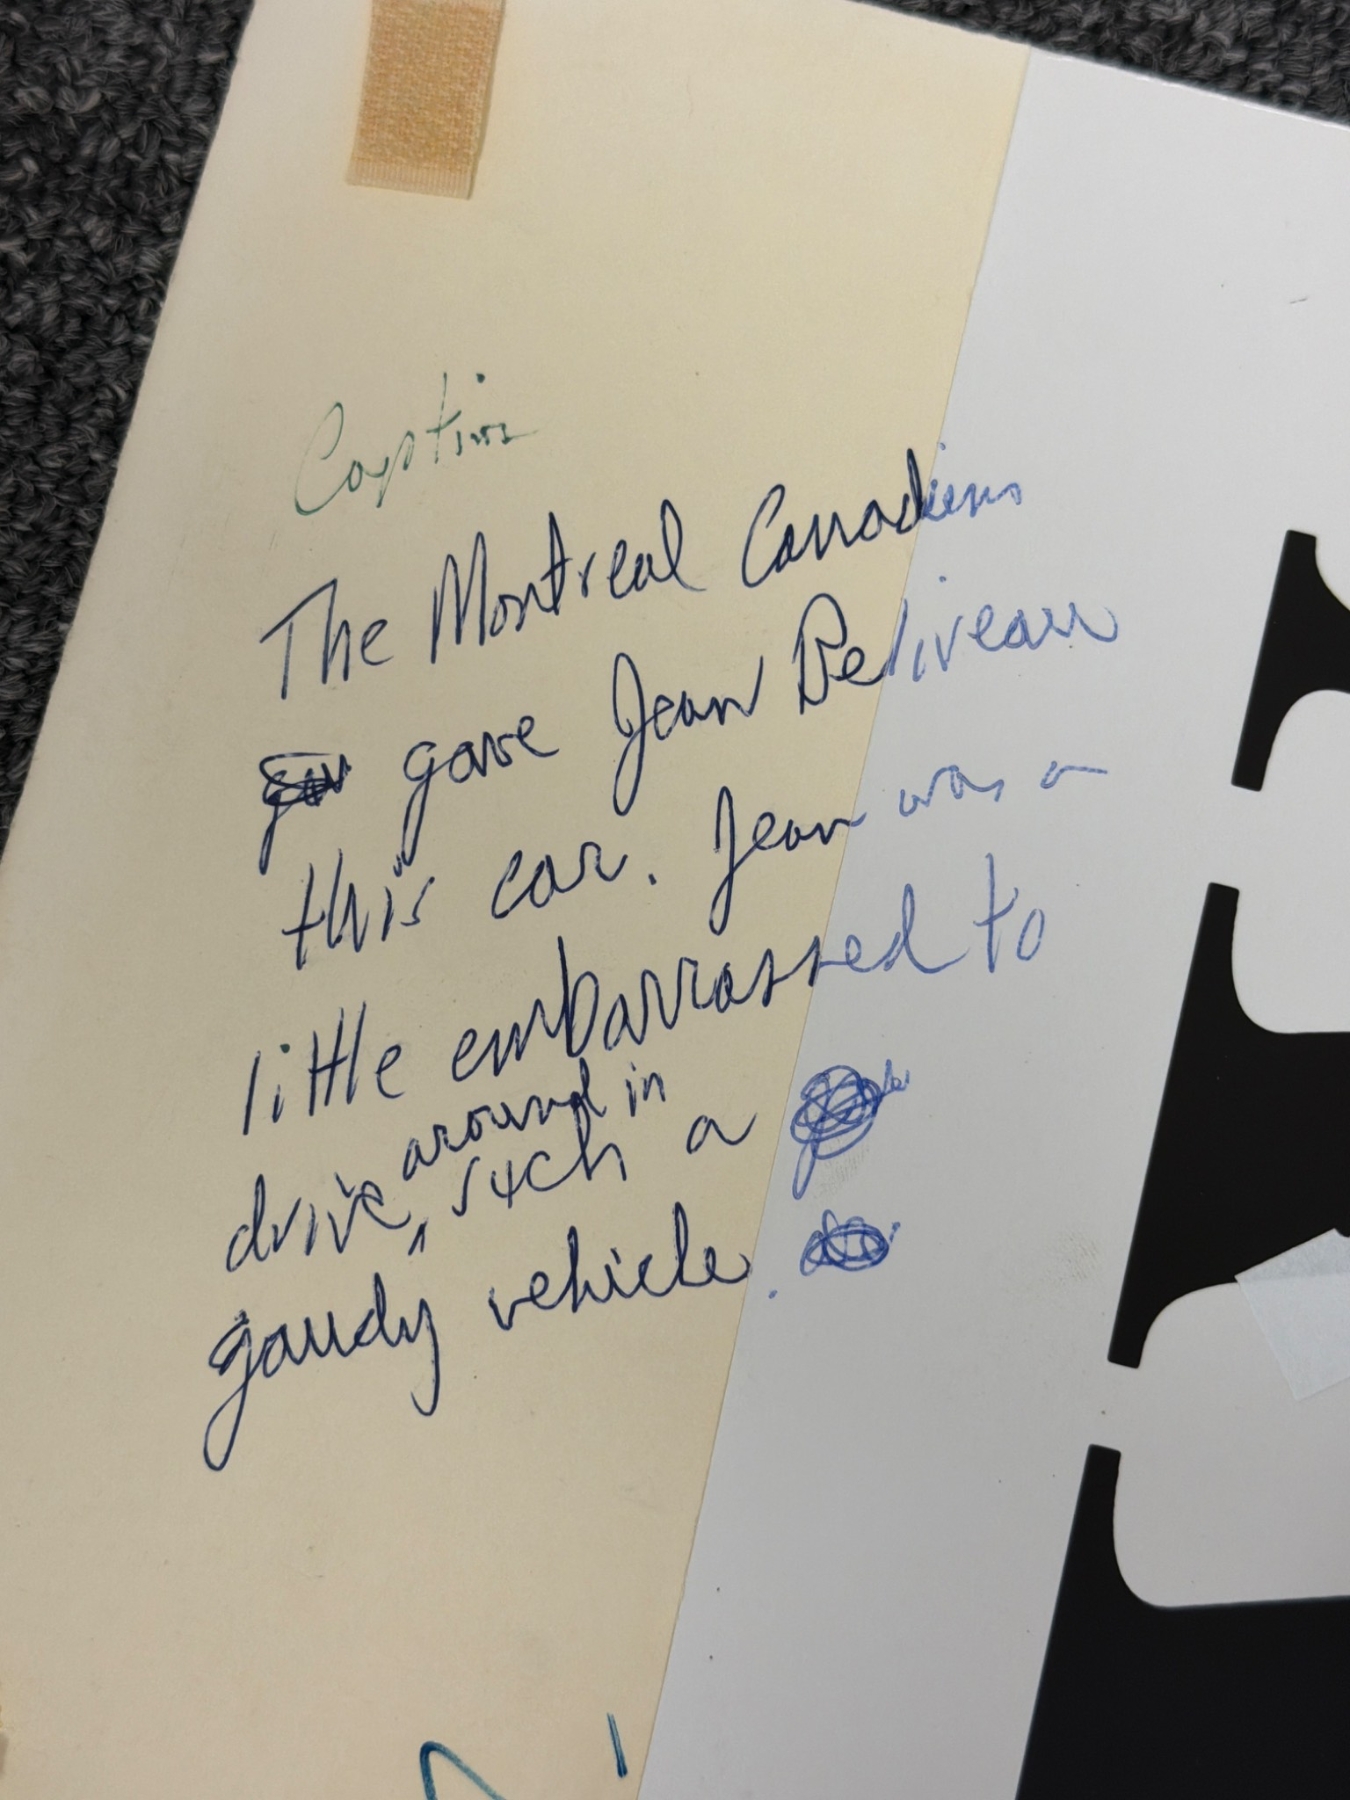 Caption
The Montreal Canadiens
gave Jean Beliveau
this car. Jean was a
little embarrassed to
drive around in such a
gaudy vehicle.